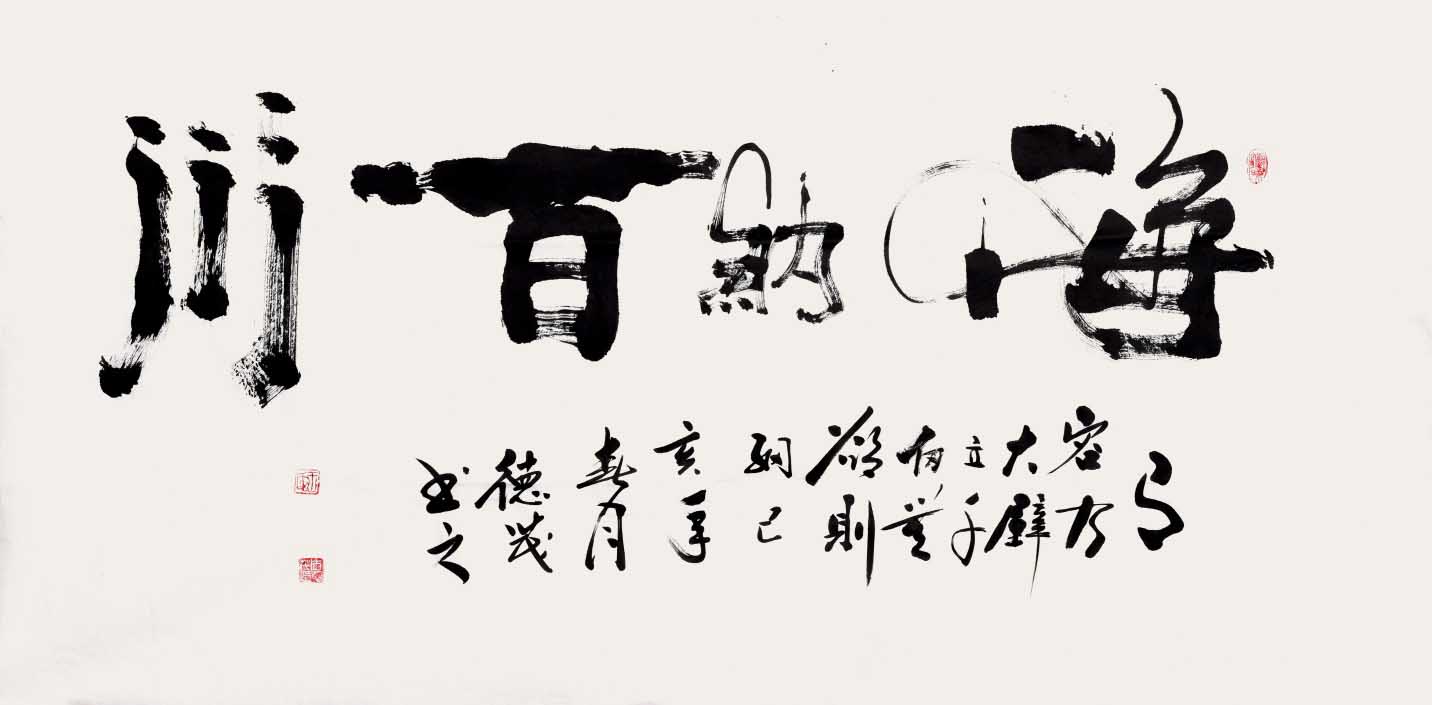 海納百川
有
容乃
大壁
立千
仞無
欲則
剛己
亥年
春月
德茂
书之